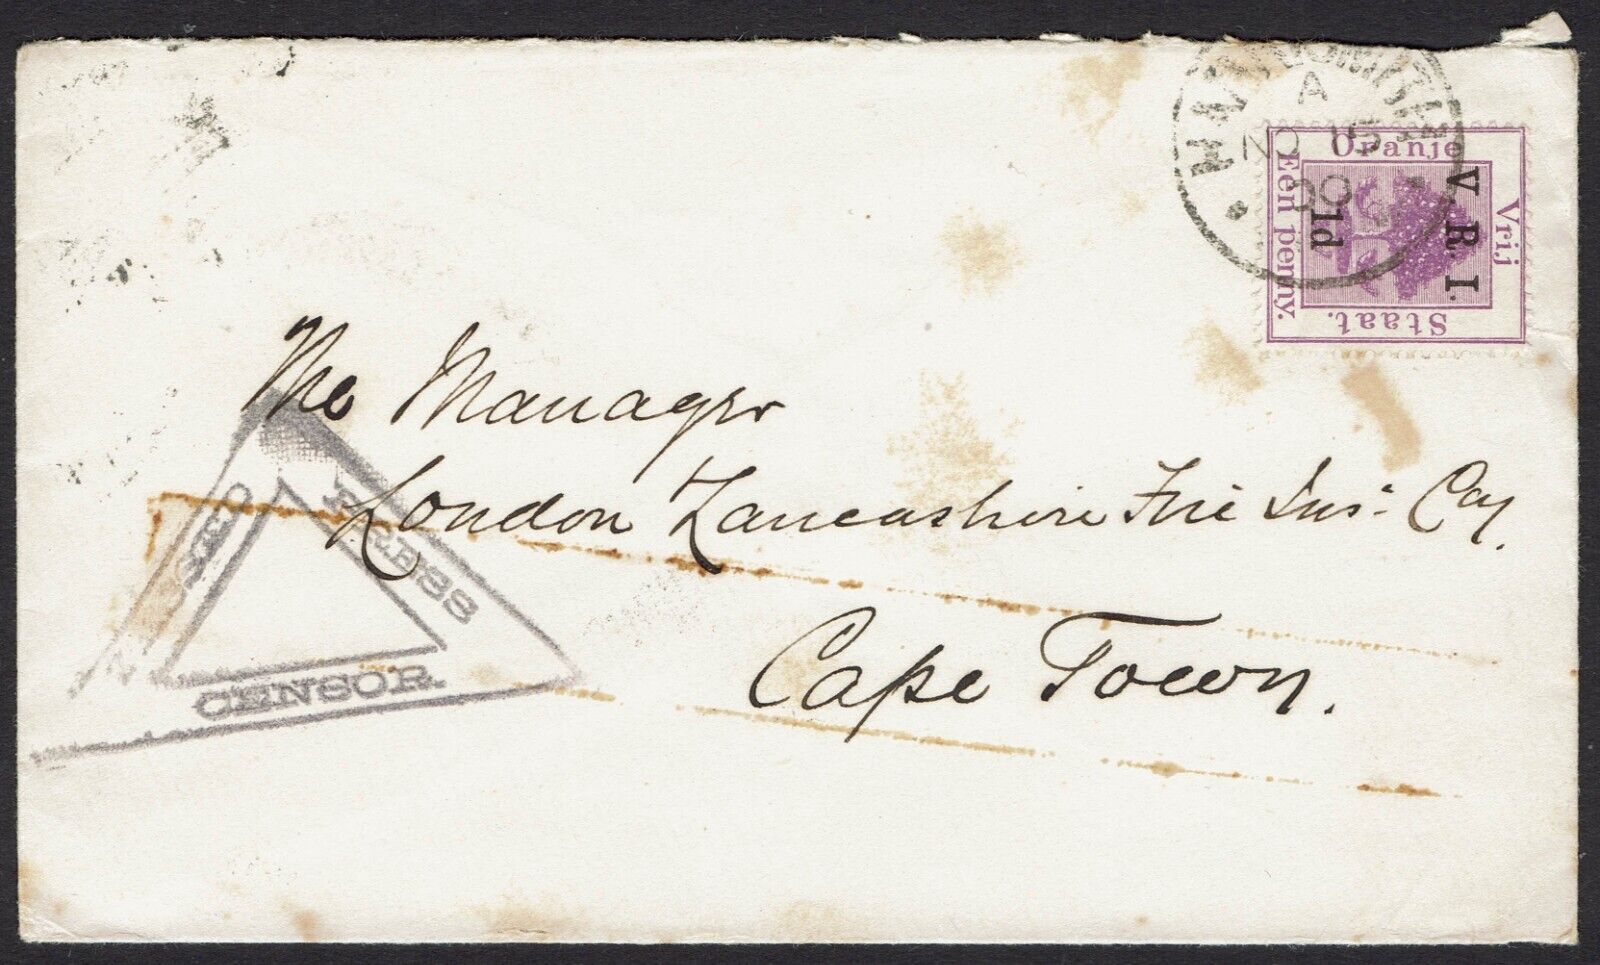 A
NO 15
00
Oranje
Vrij
Staat.
Een penny.
V. R. I.
1d
The Manager
London Lancashire Fire Insᵉ Coy.
Cape Town.
PRESS
CENSOR.